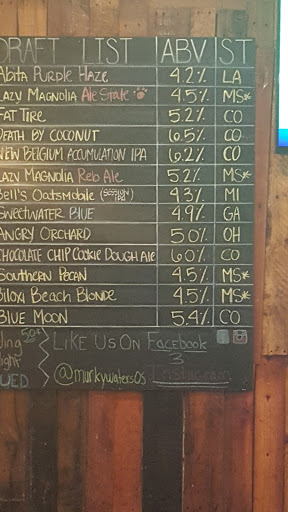 DRAFT LIST ABV ST
Abita Purple Haze 4.2% LA
Lazy Magnolia Ale State 4.5% MS*
Fat Tire 5.2% CO
Death by Coconut 6.5% CO
New Belgium Accumulation IPA 6.2% CO
Lazy Magnolia Reb Ale 5.2% MS*
Bell's Oatsmobile (Session IPA) 4.3% MI
Sweetwater Blue 4.9% GA
Angry Orchard 5.0% OH
Chocolate Chip Cookie Dough Ale 6.0% CO
Southern Pecan 4.5% MS*
Biloxi Beach Blonde 4.5% MS*
Blue Moon 5.4% CO
Like Us On Facebook
@murkywatersos Instagram